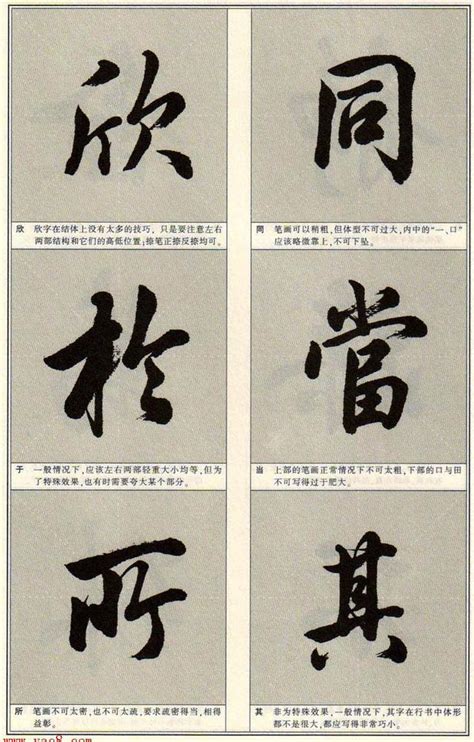 同
同 笔画可以稍粗,但体型不可过大,内中的“一、口”
应该略微靠上,不可下坠。
當
当 上部的笔画正常情况下不可太粗,下部的口与田
不可写得过于肥大。
其
其 非为特殊效果,一般情况下,其字在行书中体形
都不是很大,都应写得非常巧小。
欣
欣 欣字在结体上没有太多的技巧,只是要注意左右
两部结构和它们的高低位置;捺笔正捺反捺均可。
於
于 一般情况下,应该左右两部轻重大小均等,但为
了特殊效果,也有时需要夸大某个部分。
所
所 笔画不可太密,也不可太疏,要求疏密得当,相得
益彰。
www.yac8.com